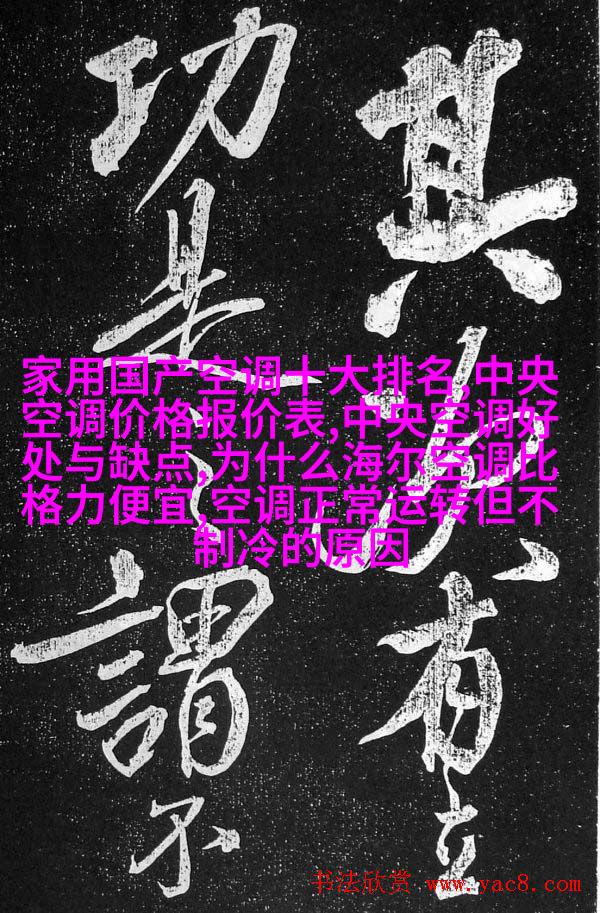 其次有立
功是之謂不
家用国产空调十大排名,中央
空调价格报价表,中央空调好
处与缺点,为什么海尔空调比
格力便宜,空调正常运转但不
制冷的原因
书法欣赏 www.yac8.com